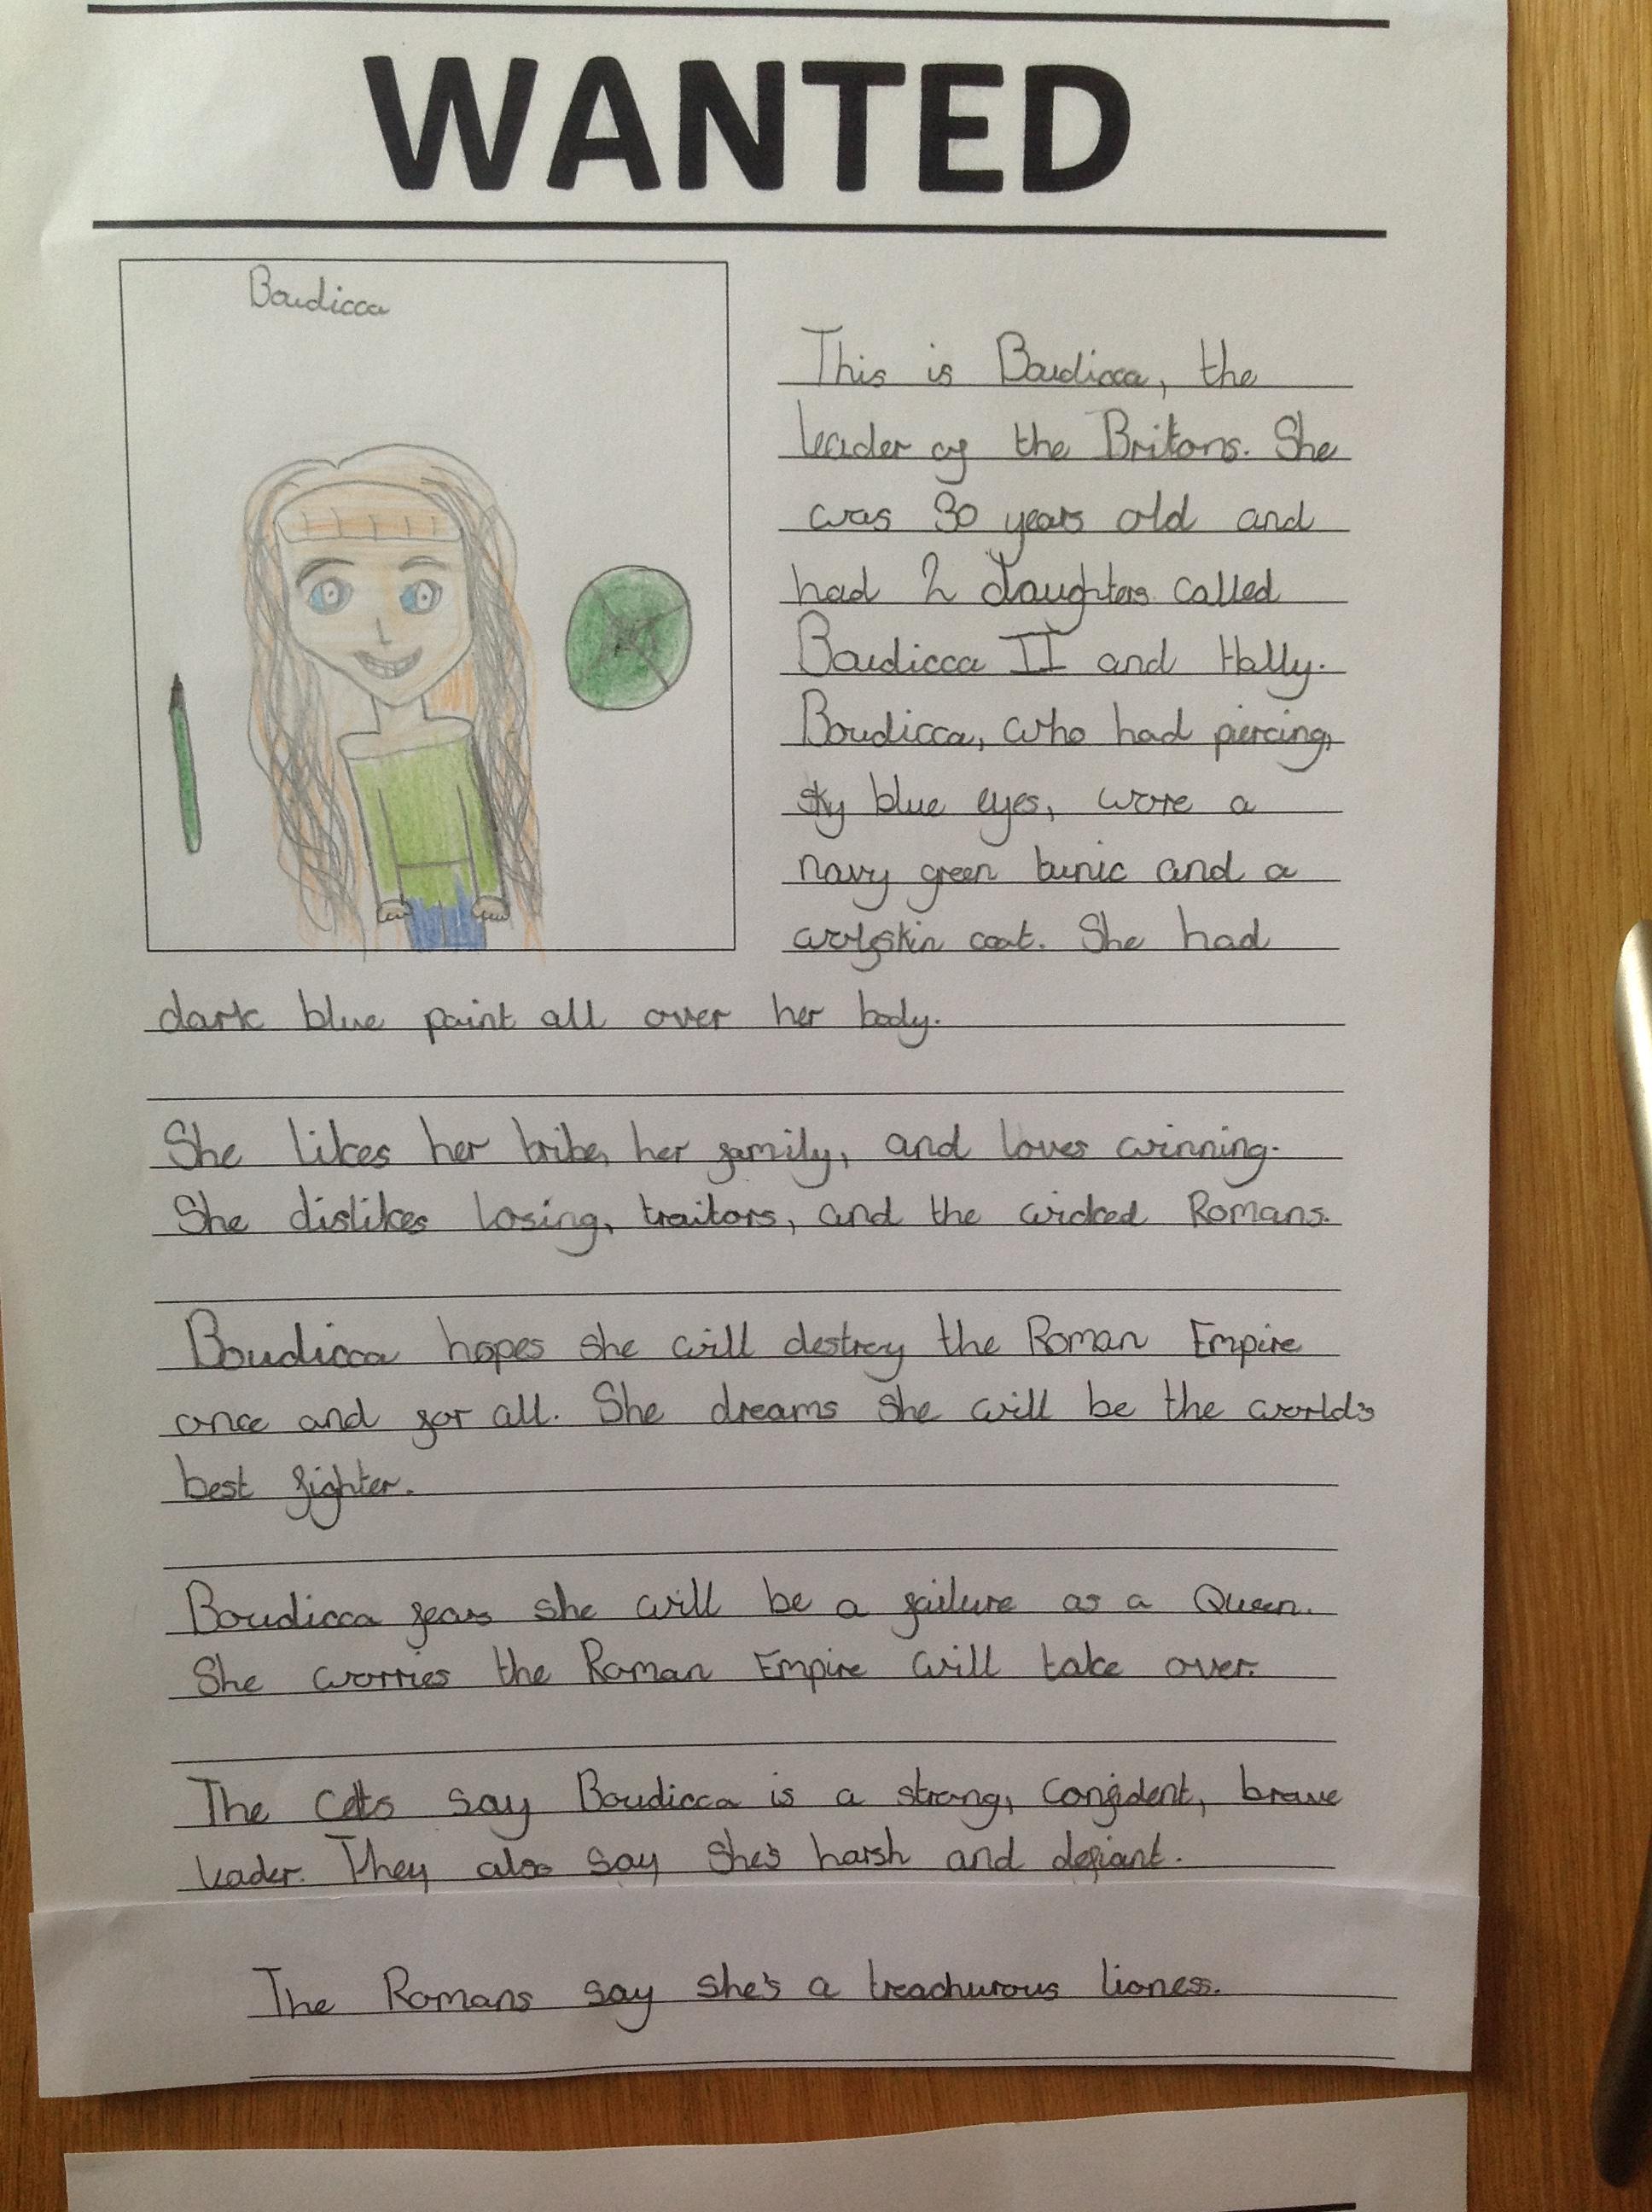 WANTED
Boudicca
This is Boudicca, the
leader of the Britons. She
was 30 years old and
had 2 daughters called
Boudicca II and Hally.
Boudicca, who had piercing,
sky blue eyes, wore a
navy green tunic and a
wolfskin coat. She had
dark blue paint all over her body.
She likes her tribe, her family, and loves winning.
She dislikes losing, traitors, and the wicked Romans.
Boudicca hopes she will destroy the Roman Empire
once and for all. She dreams she will be the world's
best fighter.
Boudicca fears she will be a failure as a Queen.
She worries the Roman Empire will take over.
The Celts say Boudicca is a strong, confident, brave
leader. They also say she's harsh and defiant.
The Romans say she's a treachurous lioness.